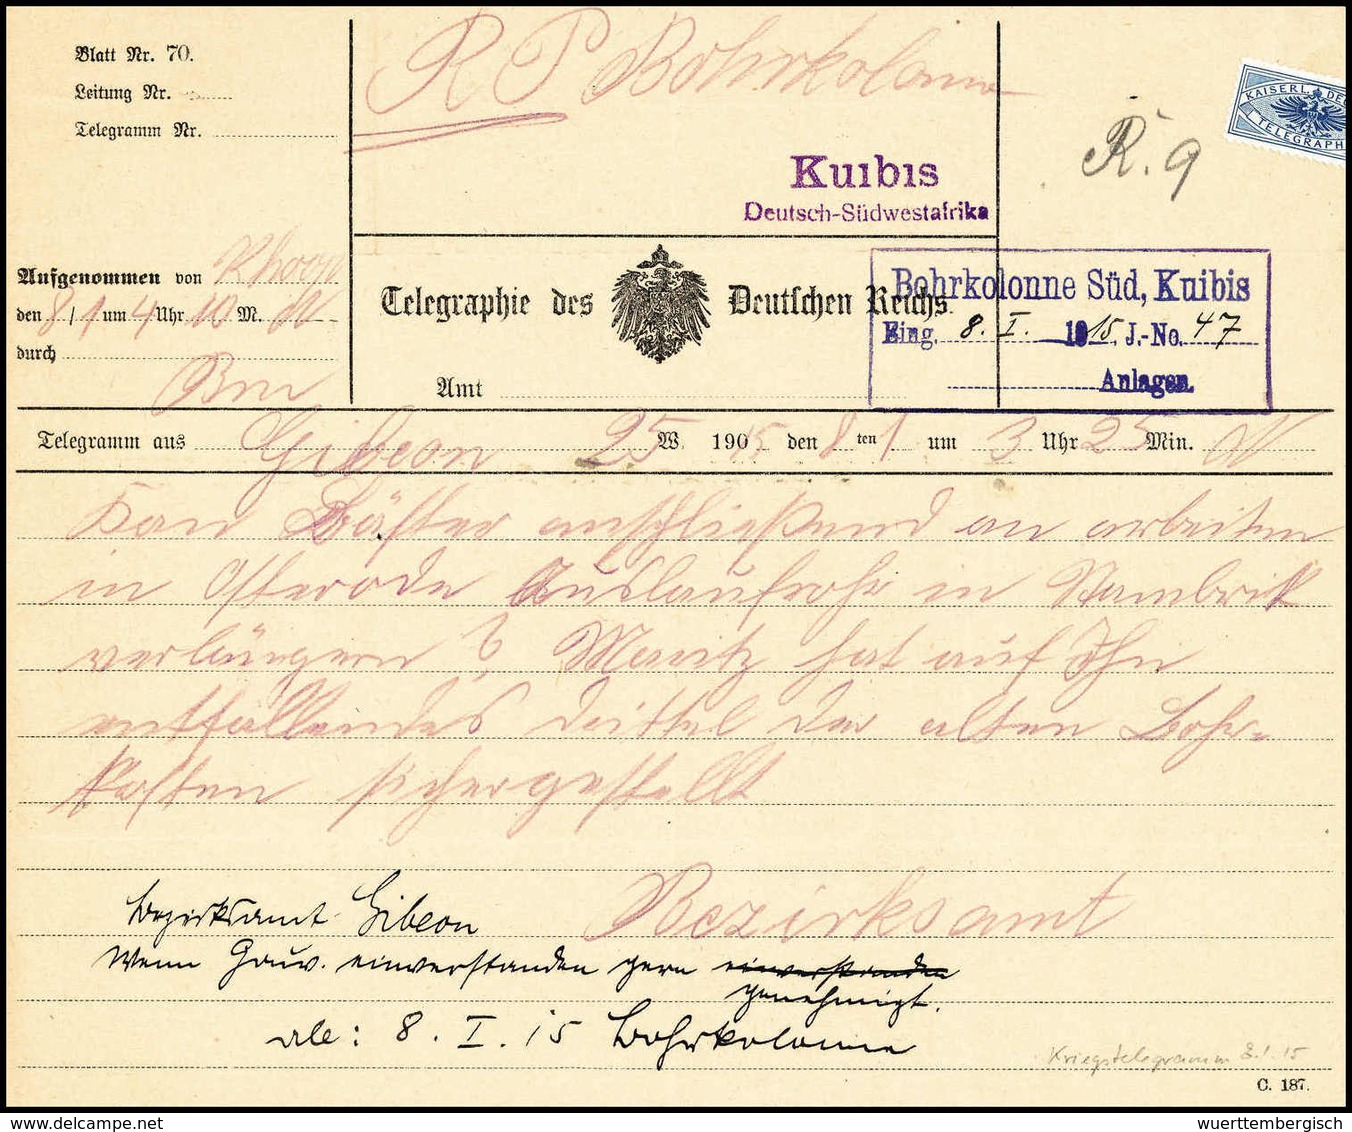 Blatt Nr. 70.
Leitung Nr.
Telegramm Nr.
R P Bohrkolonne
Kuibis
Deutsch-Südwestafrika
R. 9
KAISERL. DE
TELEGRAPH
Aufgenommen von Khoop
den 8/1 um 4 Uhr 10 M. N
durch
Bm
Telegraphie des Deutschen Reichs.
Amt
Bohrkolonne Süd, Kuibis
Eing. 8. I. 1915. J.-No. 47
Anlagen.
Telegramm aus Gibeon 25 W. 1905 15 den 8ten 1 um 3 Uhr 25 Min. N
Kan anschließend an arbeiten
in Osterode Auslaufrohr in
verlängern ? Maritz hat auf Ihn
entfallendes drittel der alten Bohr-
kosten sichergestellt
Bezirksamt
Bezirksamt Gibeon
Wenn Gouv. einverstanden gern einverstanden
genehmigt.
8. I. 15 Bohrkolonne
Kriegstelegramm 8.1.15
C. 187.
wuerttembergisch